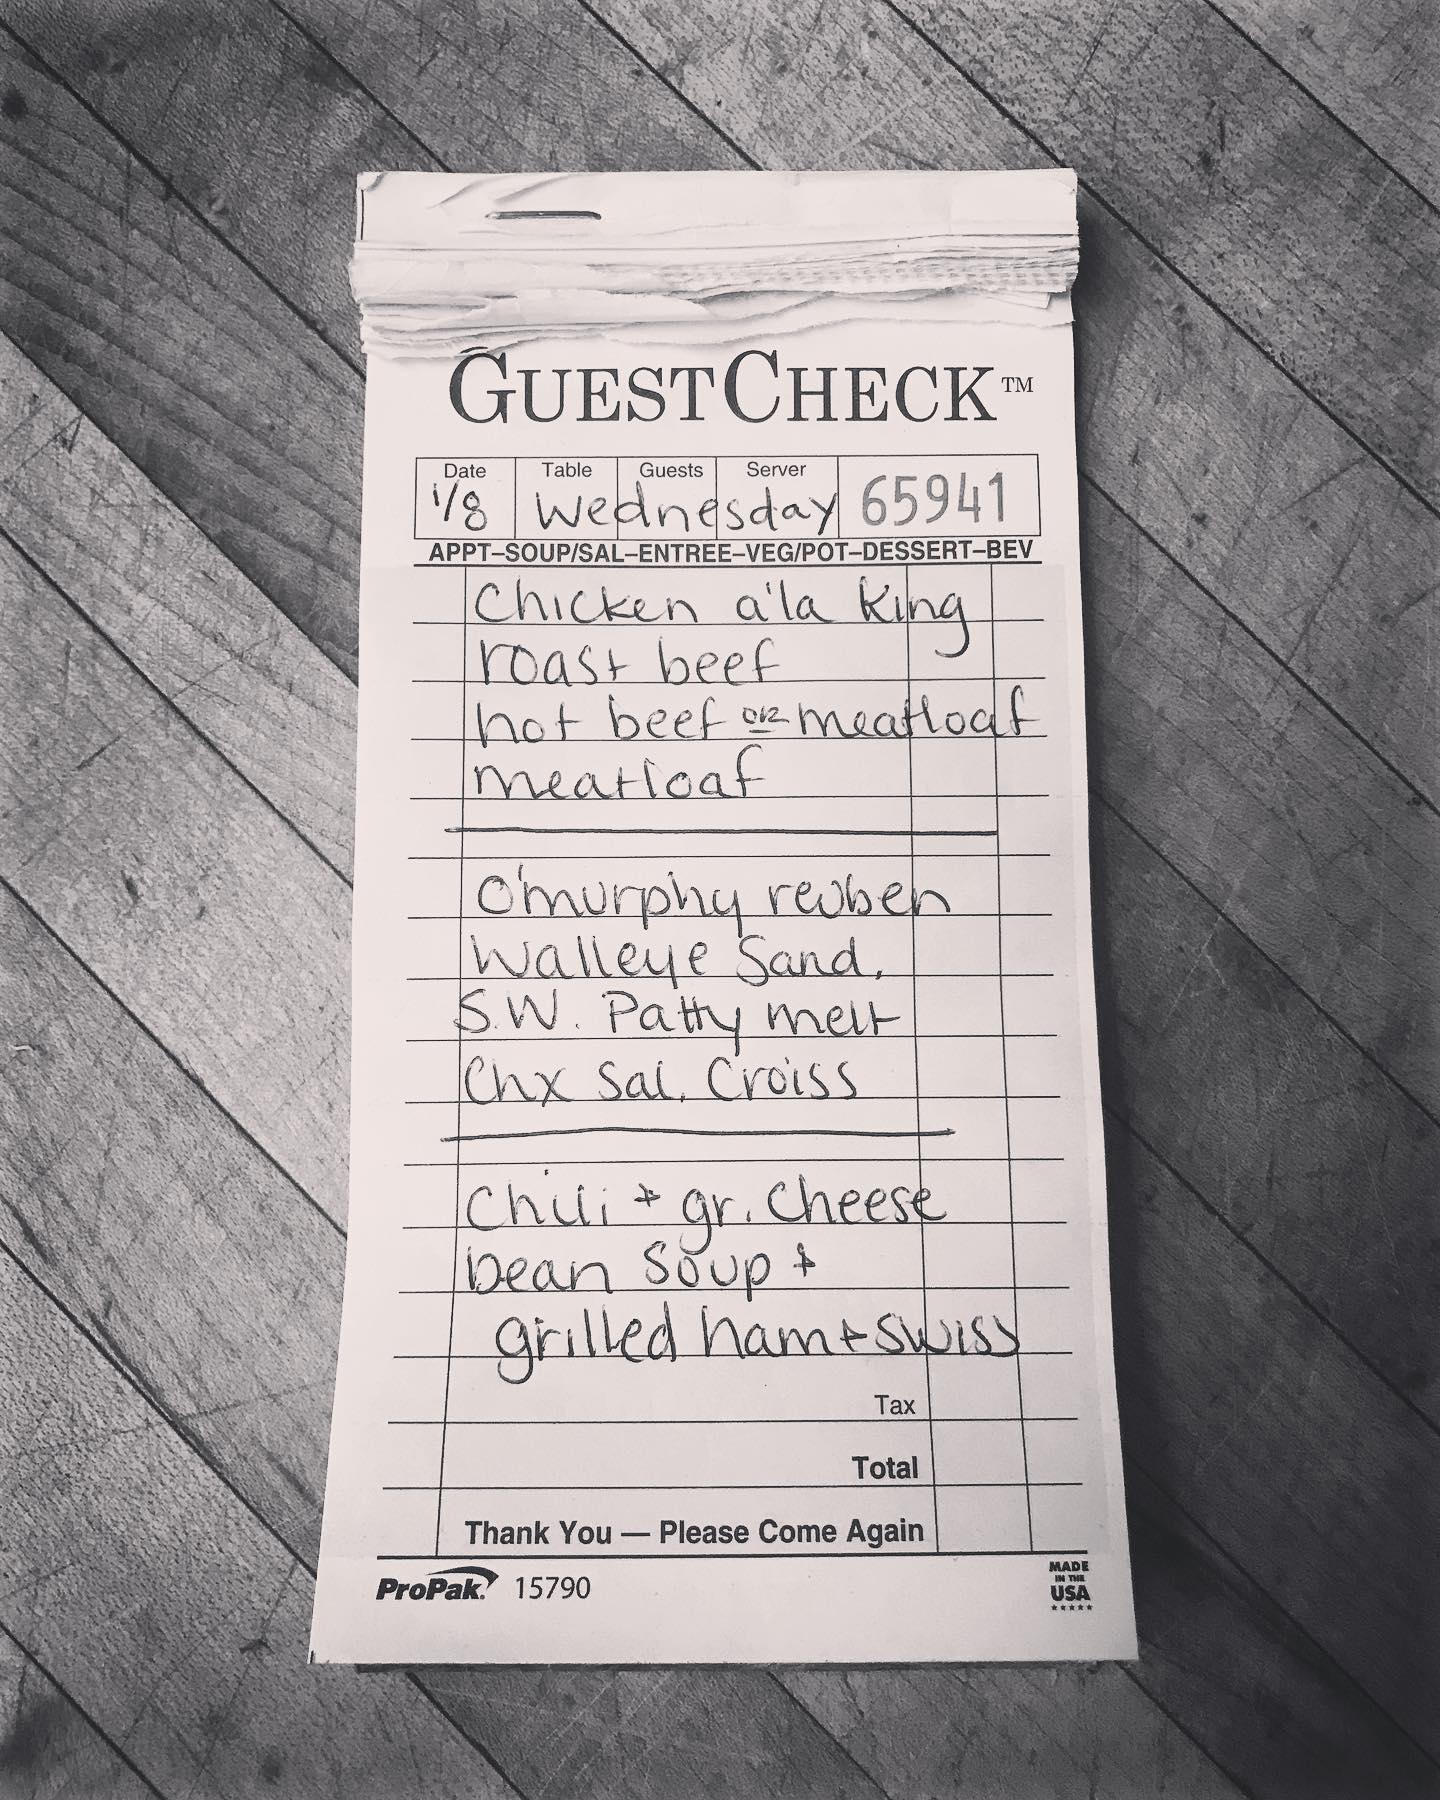 GUESTCHECK™
Date Table Guests Server
1/8 Wednesday 65941
APPT–SOUP/SAL–ENTREE–VEG/POT–DESSERT–BEV
Chicken a'la King
roast beef
hot beef or meatloaf
meatloaf
O'murphy reuben
Walleye Sand.
S.W. Patty melt
Chx Sal. Croiss
Chili + gr. Cheese
bean Soup +
grilled ham + swiss
Tax
Total
Thank You — Please Come Again
ProPak. 15790
MADE
IN THE
USA
★★★★★